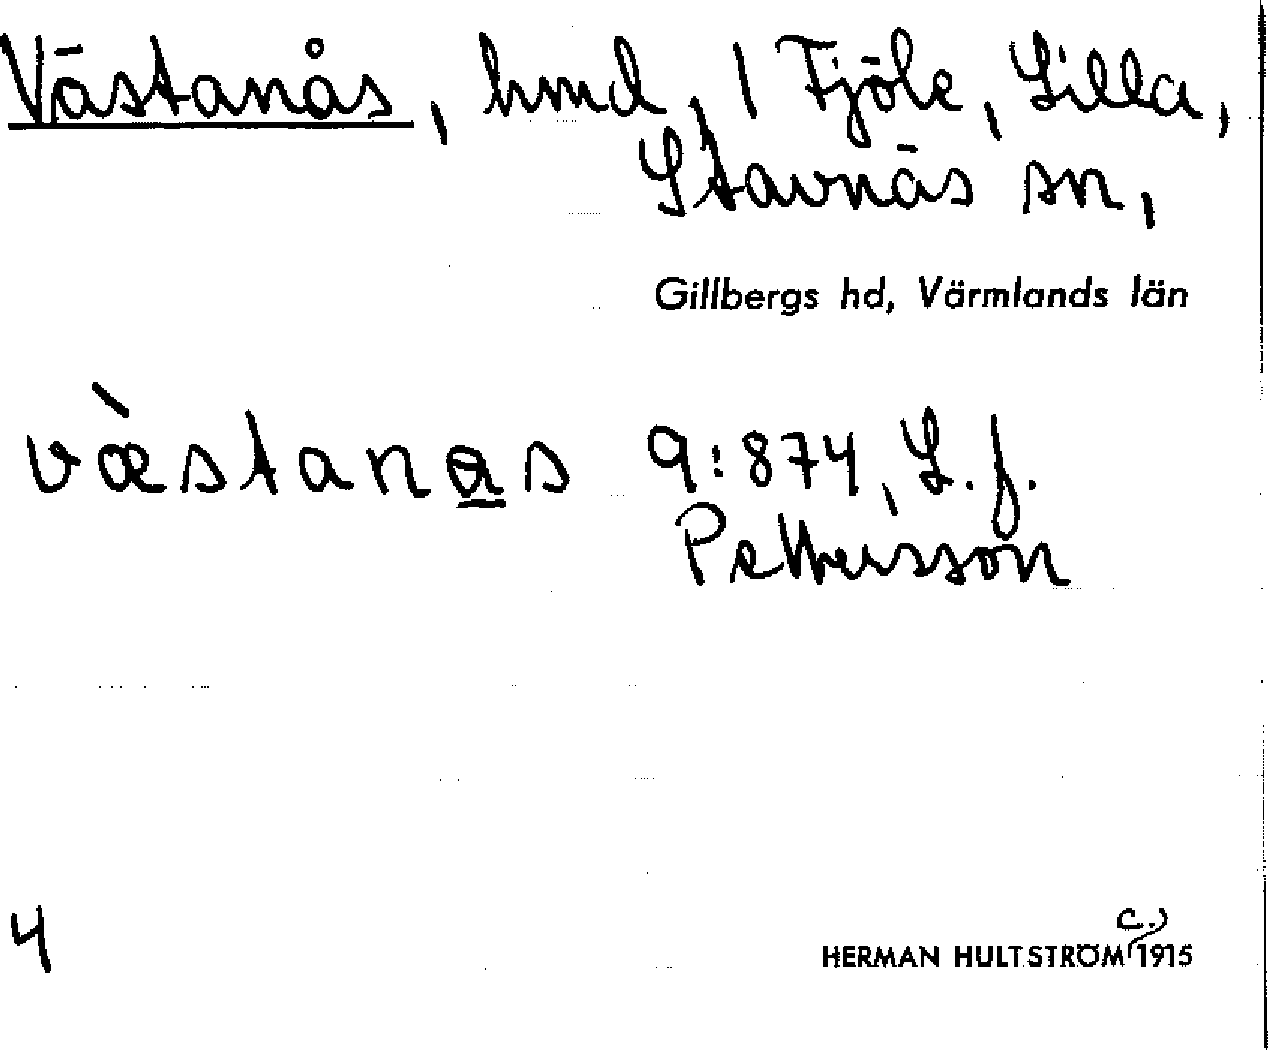 Västanås, hmd, 1 Fjöle, Lilla,
Stavnäs sn,
Gillbergs hd, Värmlands län
væ̀stanas 9:874, L. J.
Pettersson
4
c.)
HERMAN HULTSTRÖM 1915